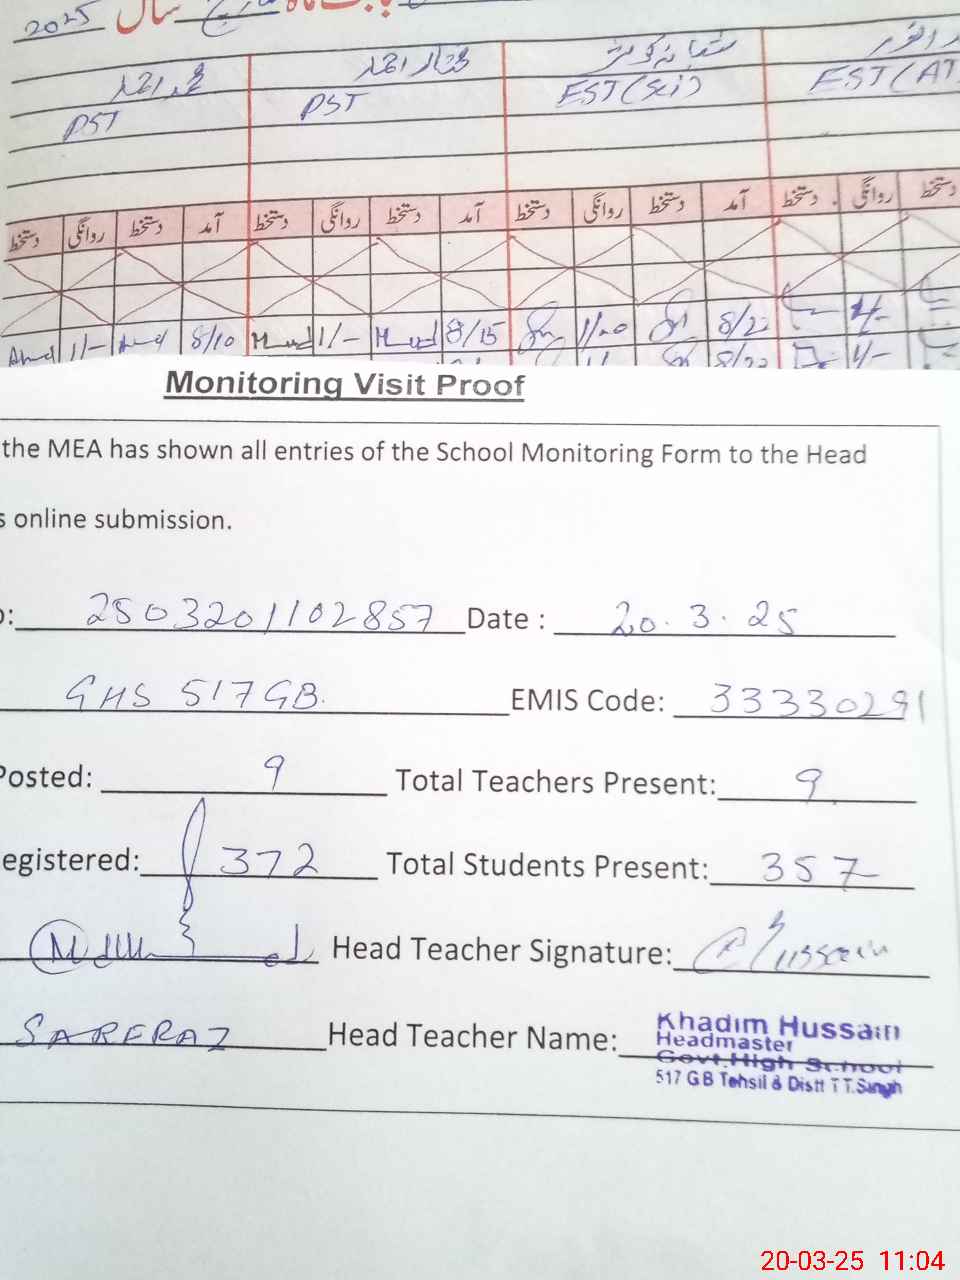 2025 سال
محمد احمد مختار احمد شبانہ کوثر
PST PST EST (Sci) EST (AT)
دستخط روانگی دستخط آمد دستخط روانگی دستخط آمد دستخط روانگی دستخط آمد دستخط روانگی دستخط
1/- 8/10 1/- 8/15 1/20 8/22 1/-
8/22 1/-
Monitoring Visit Proof
the MEA has shown all entries of the School Monitoring Form to the Head
s online submission.
: 2503201102857 Date : 20.3.25
GHS 517 GB. EMIS Code: 33330291
Posted: 9 Total Teachers Present: 9
egistered: 372 Total Students Present: 357
Head Teacher Signature: Hussain
SARFRAZ Head Teacher Name: Khadim Hussain
Headmaster
Govt. High School
517 GB Tehsil & Distt T.T.Singh
20-03-25 11:04